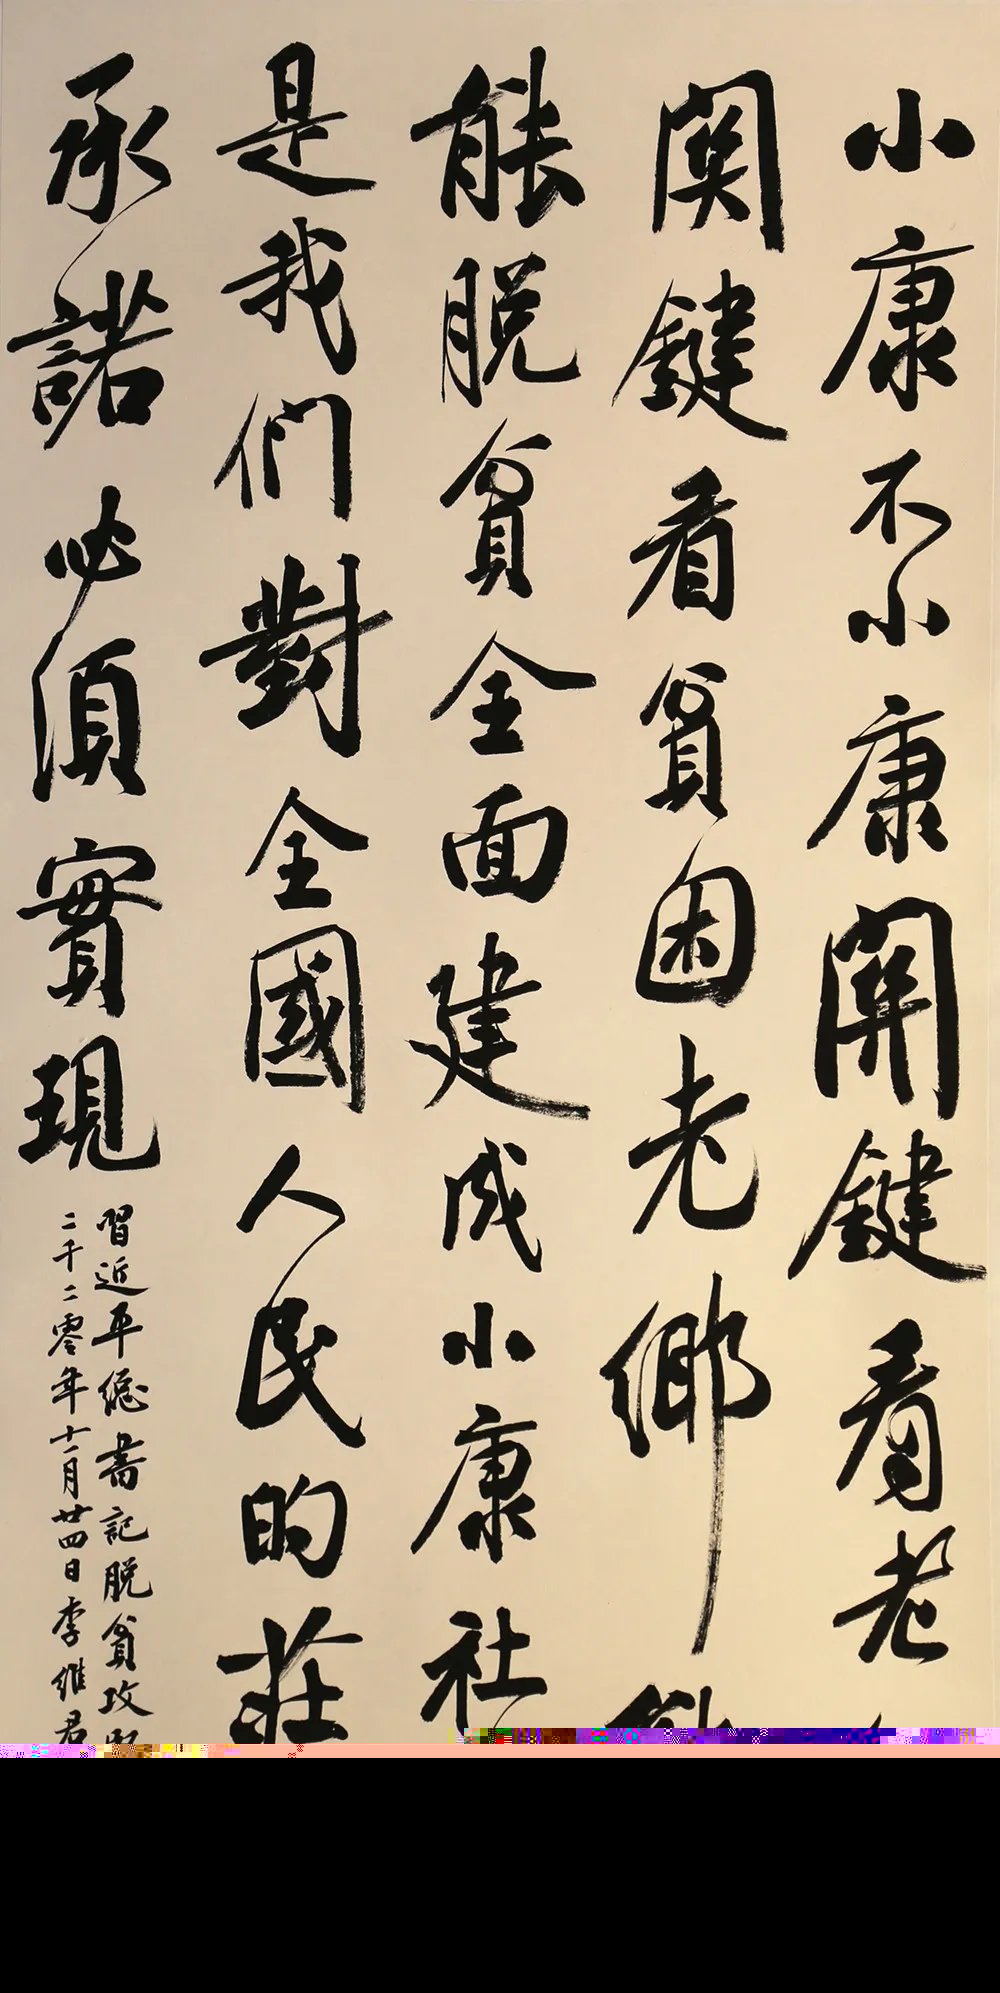 小康不小康關鍵看老
関鍵看貧困老鄉
能脱貧全面建成小康社
是我們對全國人民的莊
承諾必須實現
習近平總書記脱貧攻
二千二零年十一月廿四日李維君